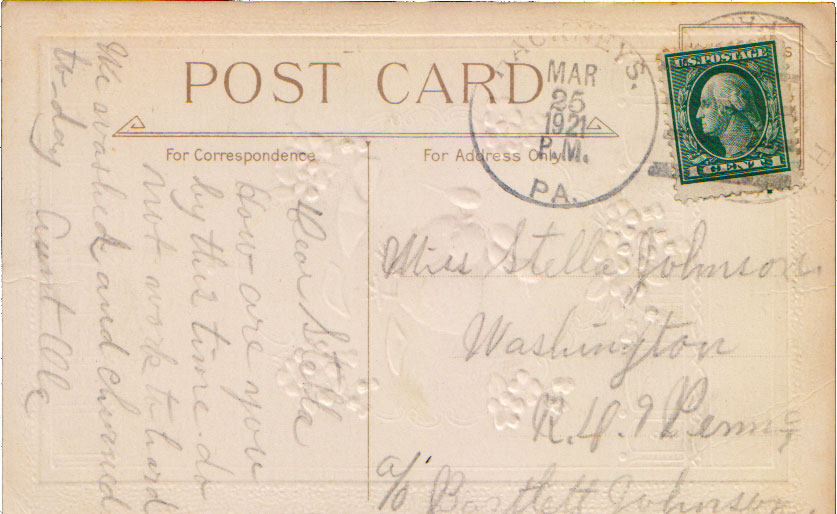 POST CARD
For Correspondence
For Address Only
HACKNEYS.
MAR
25
1921
P.M.
PA.
U.S. POSTAGE
1 CENT 1
Dear Stella
how are you
by this time. do
not work to hard
We washed and churned
to day Aunt Ola
Miss Stella Johnson.
Washington
R.D. 9 Penna
c/o Bartlett Johnson.